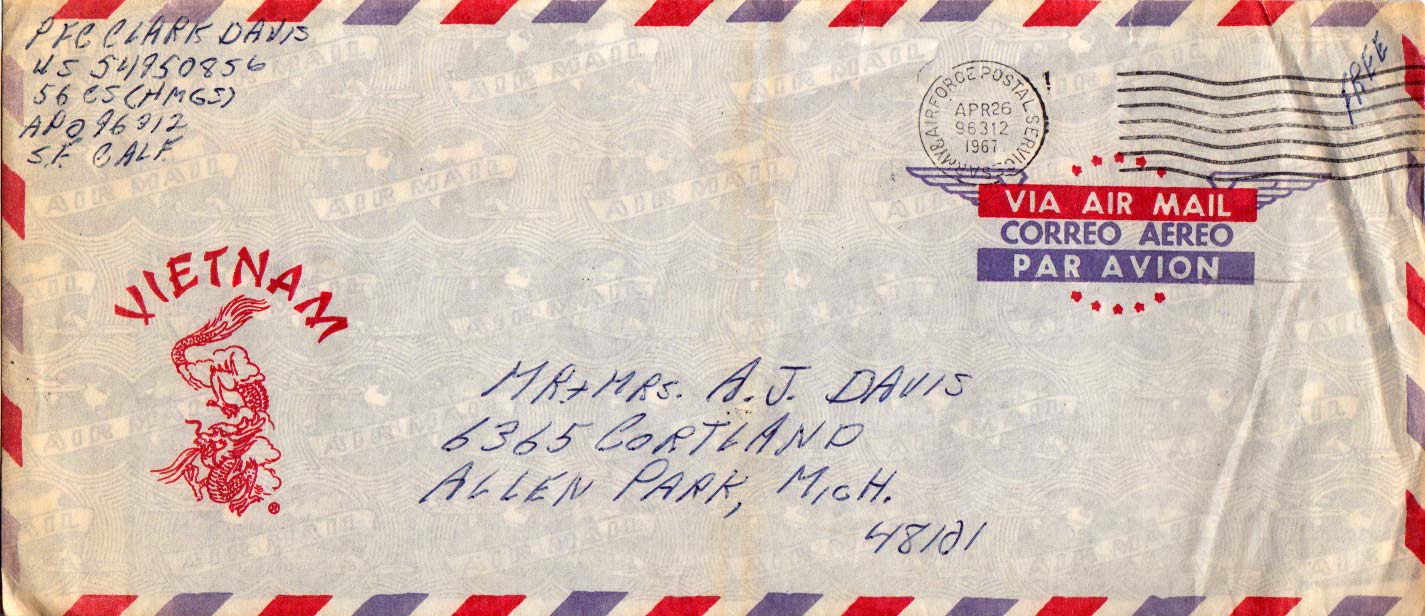 PFC CLARK DAVIS
US 54950856
56 CS (HMGS)
APO 96312
S.F. CALF.
FREE
ARMY & AIR FORCE POSTAL SERVICE
APR 26
96312
1967
VIA AIR MAIL
CORREO AEREO
PAR AVION
VIETNAM
®
MR + MRS. A. J. DAVIS
6365 CORTLAND
ALLEN PARK, MICH.
48101